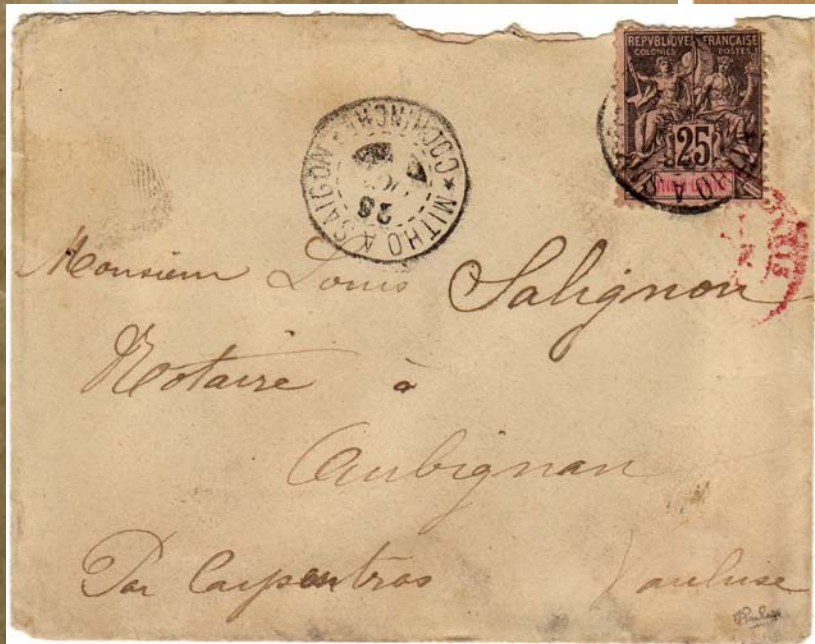 REPVBLIQVE FRANÇAISE
COLONIES POSTES
25
INDO-CHINE
MITHO A SAIGON
★ COCHINCHINE ★
28
PARIS
Monsieur Louis Salignon
Notaire à
Aubignan
Par Carpentras Vaucluse